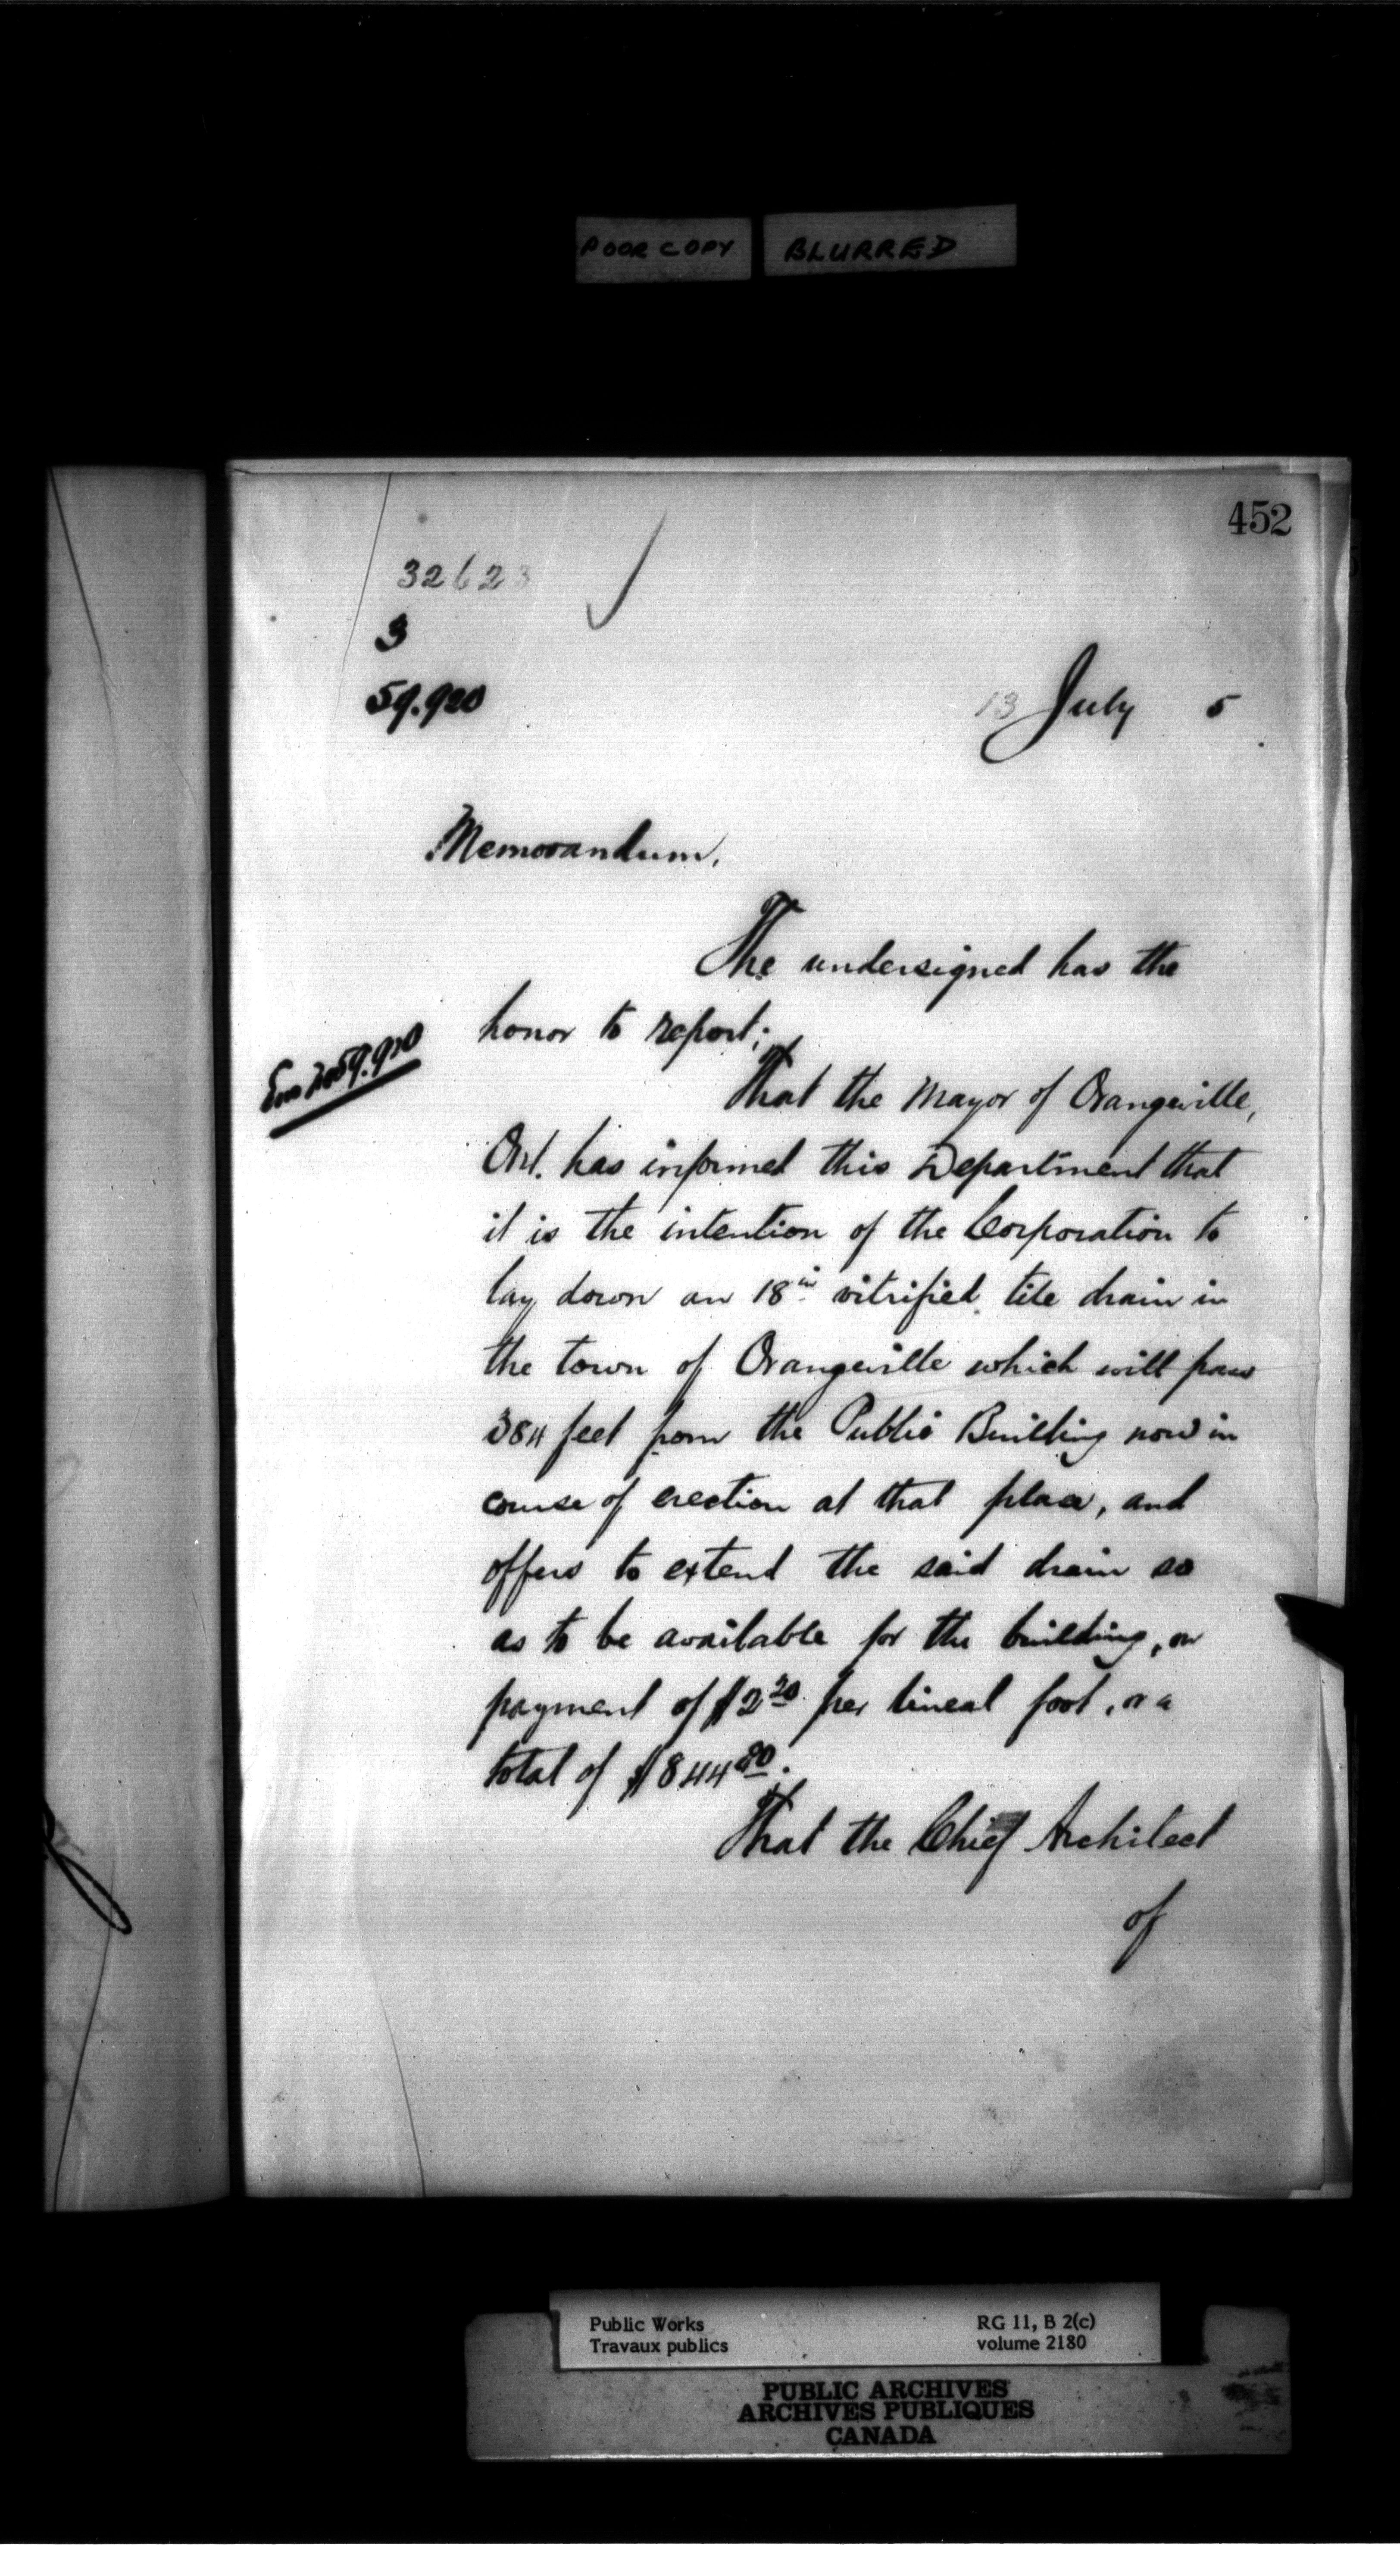 POOR COPY BLURRED
452
32623
3
59.920
13 July 5
Memorandum.
The undersigned has the
honor to report;
59.920
That the Mayor of Orangeville,
Ont. has informed this Department that
it is the intention of the Corporation to
lay down an 18in vitrified tile drain in
the town of Orangeville which will pass
384 feet from the Public Building now in
course of erection at that place, and
offers to extend the said drain so
as to be available for the building, on
payment of $2 20 per lineal foot, or a
total of $844 80.
That the Chief Architect
of
Public Works RG 11, B 2(c)
Travaux publics volume 2180
PUBLIC ARCHIVES
ARCHIVES PUBLIQUES
CANADA